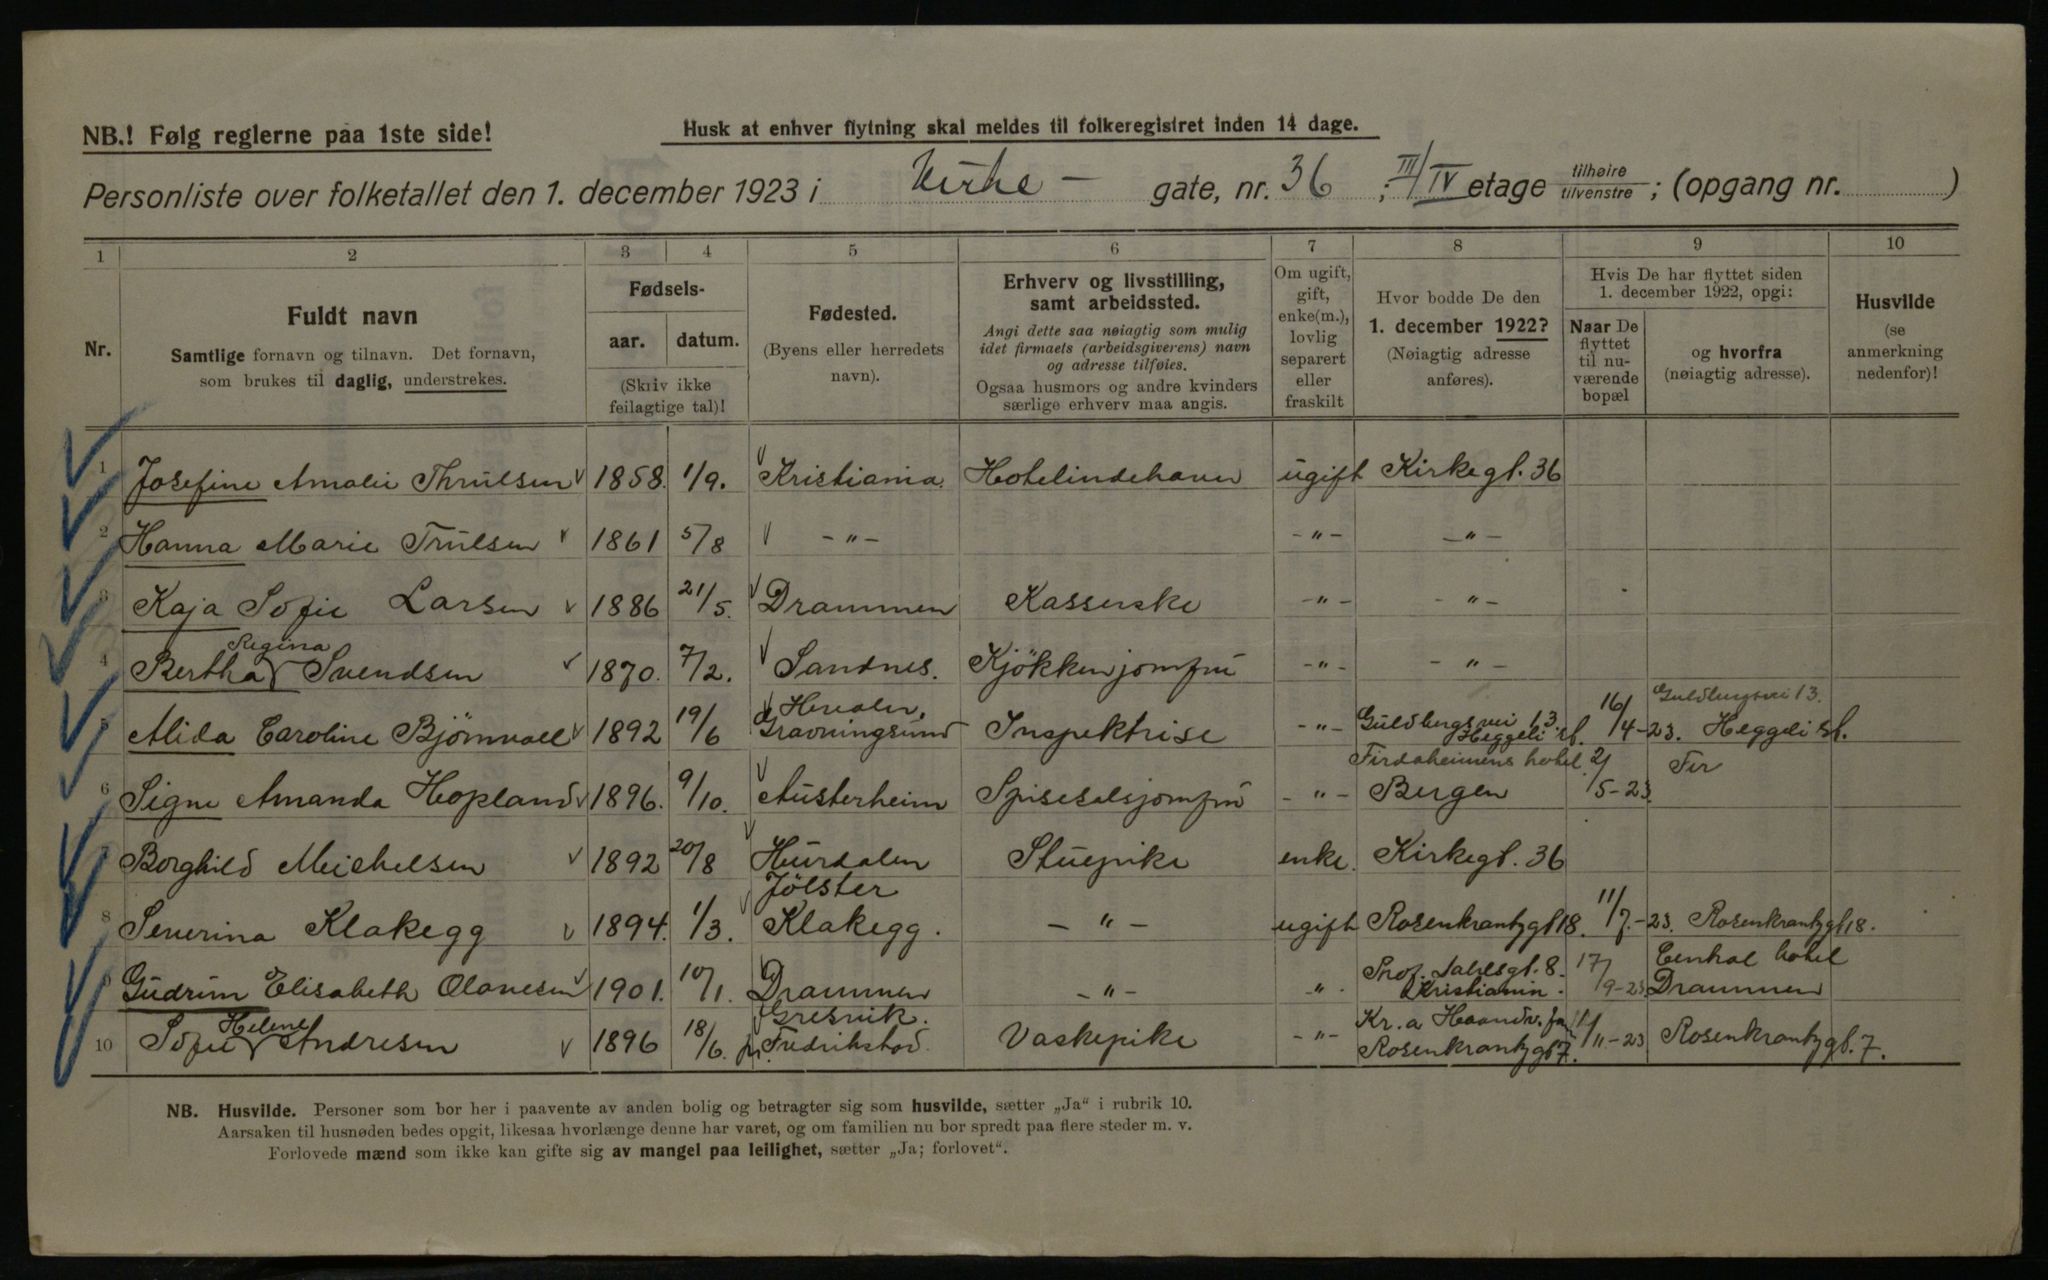 NB.! Følg reglerne paa 1ste side!
Husk at enhver flytning skal meldes til folkeregistret inden 14 dage.
Personliste over folketallet den 1. december 1923 i Kirke- gate, nr. 36 ; III/IV etage tilhøire/tilvenstre ; (opgang nr. )
1 2 3 4 5 6 7 8 9 10
Nr.
Fuldt navn
Samtlige fornavn og tilnavn. Det fornavn,
som brukes til daglig, understrekes.
Fødsels-
aar. datum.
(Skriv ikke
feilagtige tal)!
Fødested.
(Byens eller herredets
navn).
Erhverv og livsstilling,
samt arbeidssted.
Angi dette saa nøiagtig som mulig
idet firmaets (arbeidsgiverens) navn
og adresse tilføies.
Ogsaa husmors og andre kvinders
særlige erhverv maa angis.
Om ugift,
gift,
enke(m.),
lovlig
separert
eller
fraskilt
Hvor bodde De den
1. december 1922?
(Nøiagtig adresse
anføres).
Hvis De har flyttet siden
1. december 1922, opgi:
Naar De
flyttet
til nu-
værende
bopæl
og hvorfra
(nøiagtig adresse).
Husvilde
(se
anmerkning
nedenfor)!
1 Josefine Amalie Thrulsen 1858. 1/9. Kristiania Hotelindehaver ugift Kirkegt. 36
2 Hanna Marie Trulsen 1861 5/8 -"- -"- -"-
3 Kaja Sofie Larsen 1886 21/5. Drammen Kasserske -"- -"-
Regina
4 Bertha Svendsen 1870. 7/2. Sandnes. Kjökkenjomfru -"- -"-
Guldbergsvei 13.
5 Alida Caroline Björnvall 1892 19/6 Gravningsund Inspektrise -"- Guldbergsvei 13. Heggeli st. 16/4-23. Heggeli st.
Firdaheimens hotel
6 Signe Amanda Hopland 1896. 9/10. Austerheim Spisesalsjomfru -"- Bergen 2/5-23.
7 Borghild Michelsen 1892 20/8 Hurdalen Stuepike enke. Kirkegt. 36
Jölster
8 Severina Klakegg 1894. 1/3. Klakegg. -"- ugift Rosenkrantzgt 18. 11/7.-23. Rosenkrantzgt 18.
Prof. Dahlsgt. 8. Central hotel
9 Gudrun Elisabeth Olavesen 1901. 10/1. Drammen -"- " Kristiania. 17/9-23 Drammen
Helene Gresvik. Kr.a Haandv. for
10 Sofie Andresen 1896 18/6. pr. Fredrikstad. Vaskepike -"- Rosenkrantzgt 7. 1/11-23 Rosenkrantzgt. 7.
NB. Husvilde. Personer som bor her i paavente av anden bolig og betragter sig som husvilde, sætter „Ja“ i rubrik 10.
Aarsaken til husnøden bedes opgit, likesaa hvorlænge denne har varet, og om familien nu bor spredt paa flere steder m. v.
Forlovede mænd som ikke kan gifte sig av mangel paa leilighet, sætter „Ja; forlovet“.